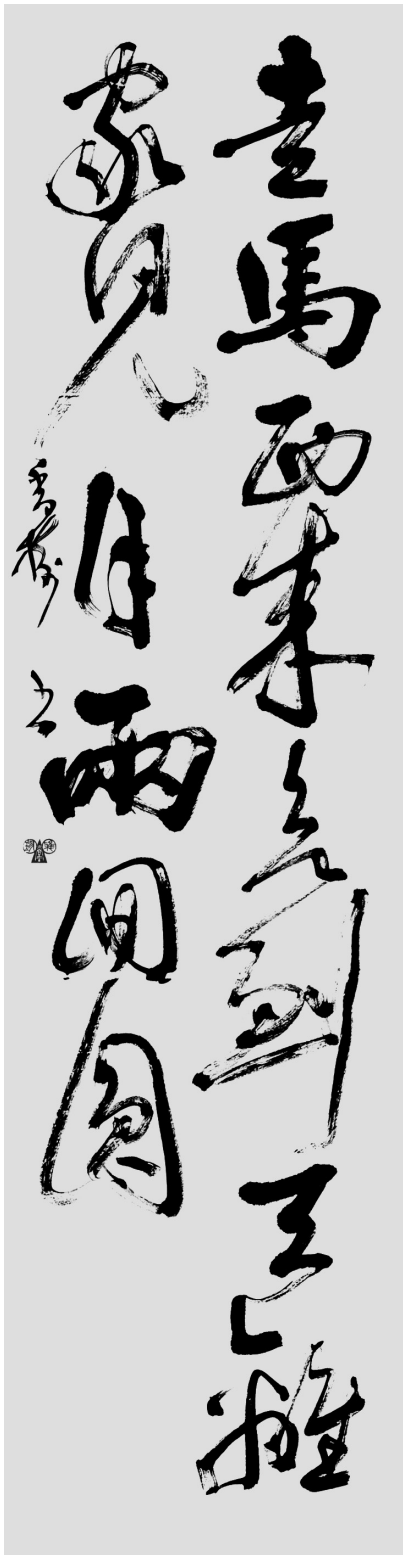 走馬西來欲到天離
家見月兩回圓